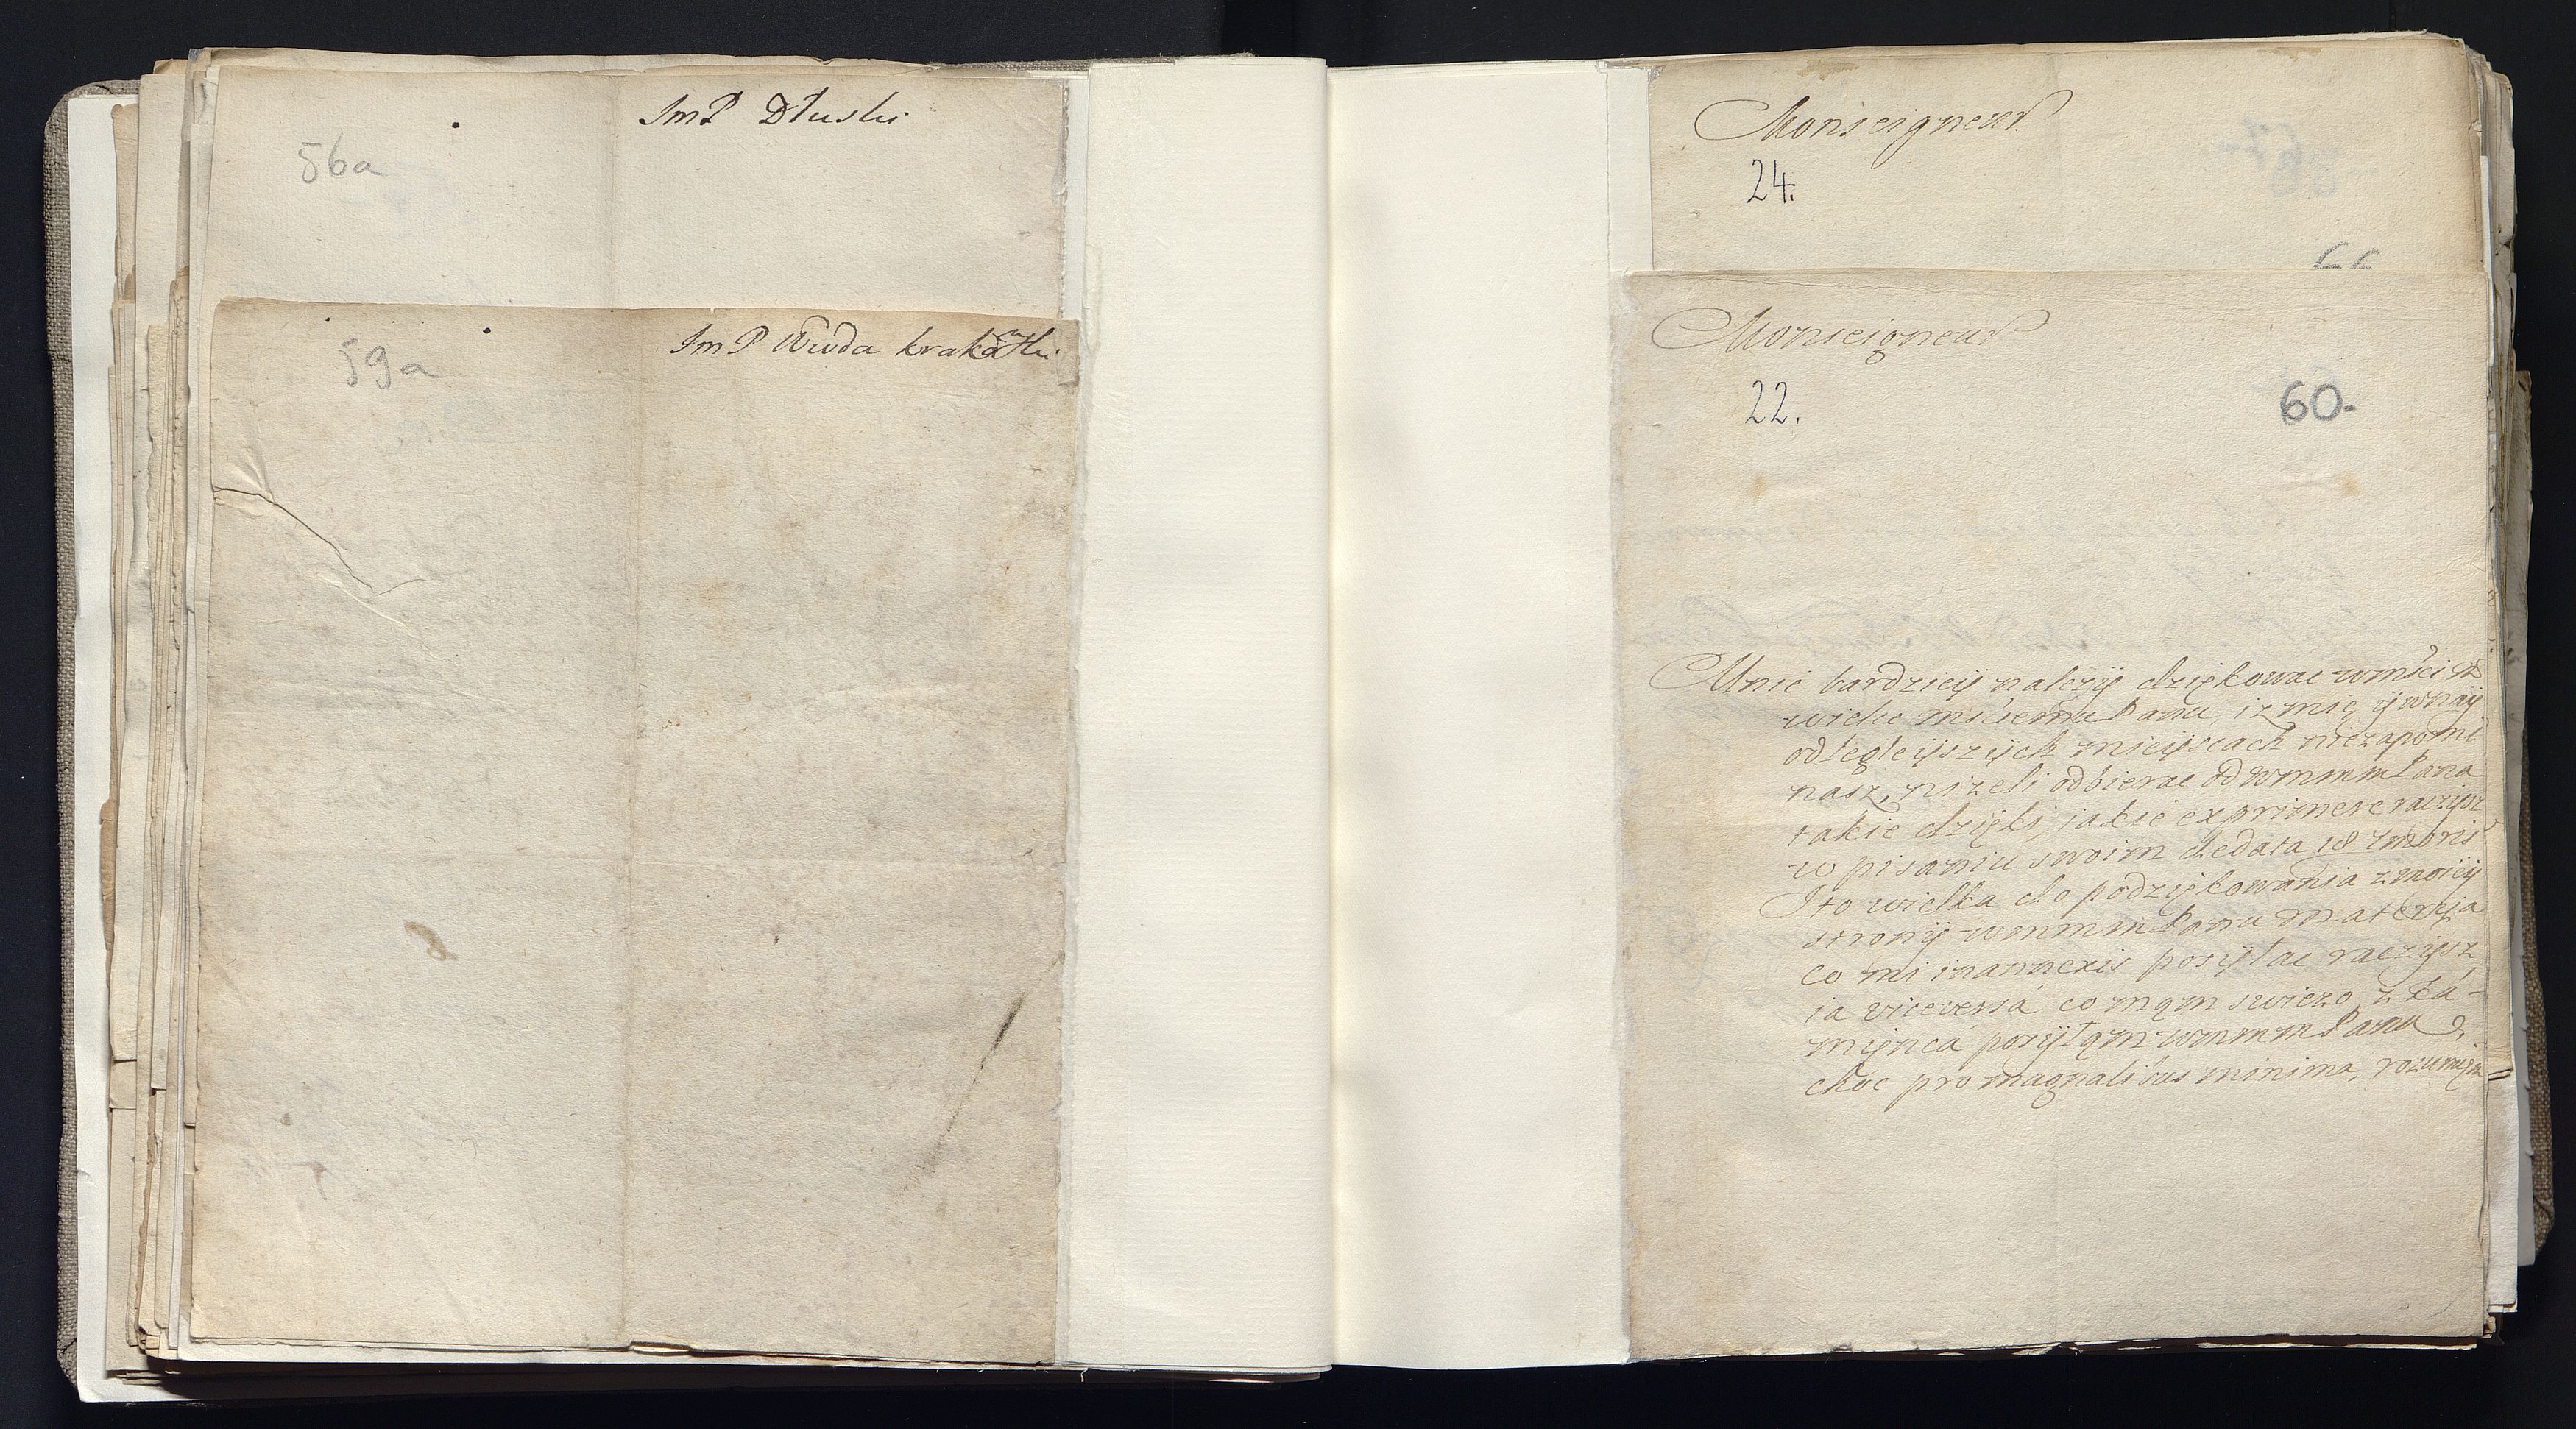 ImP Dłuski
56a
ImP Wwda krakowski
59a
Monseigneur
24.
Monseigneur
22.
60-
Mnie bardzieÿ należÿ dziękowac wmści
wielce mściemu Panu, iz mię ÿ wnaÿ
odlegleÿszÿch mieÿscach niezapomi
nasz, nizeli odbierac od wmmm Pana
takie dzięki jakie exprimere raczÿsz
w pisaniu swoim dedata 18
I to wielka do podziękowania z moieÿ
stronÿ wmmm Panu materÿja
co mi inannexis posÿłac raczÿsz
ia viceversá co mąm swiezo, z Ká-
mięncá posÿłąm wmmm Panu
choc pro magnalibus minima, rozumięm